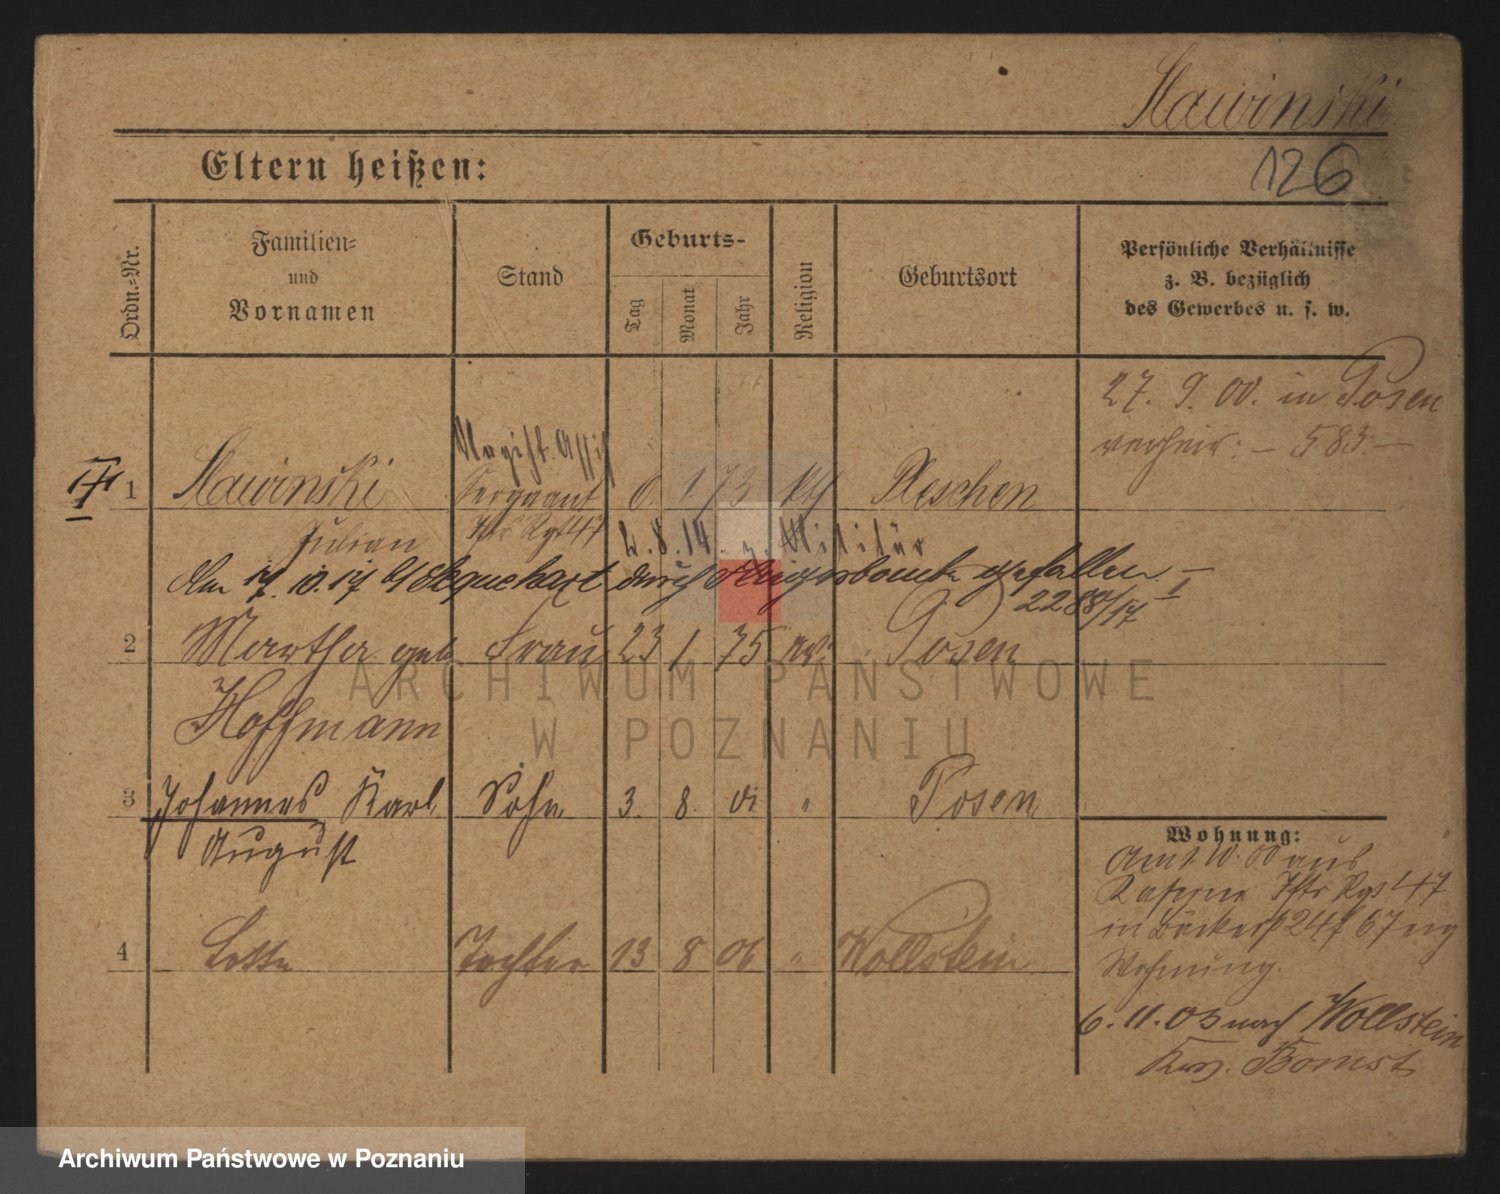 Slawinski
126
Eltern heißen:
Ordn.-Nr.
Familien-
und
Vornamen
Stand
Geburts-
Tag
Monat
Jahr
Religion
Geburtsort
Persönliche Verhältnisse
z. B. bezüglich
des Gewerbes u. s. w.
27. 9. 00. in Posen
verheir: – 583 –
Magist. Assist
1 Slawinski Sergeant 6. 1. 73 kth Pleschen
Julian Iftr Rgt 47 2. 8. 14. z. Militär
Am 17. 10. 17 durch gefallen. –
2 Martha geb. Frau 23 1 75 ev. Posen
Hoffmann
3 Johannes Karl Sohn 3. 8. 01 " Posen
August
4 Lotte Tochter 13 8 06 " Wollstein
Wohnung:
Am 1. 10. 00 aus
Kaserne Iftr Rgt 47
in
Wohnung.
6. 11. 03 nach Wollstein
Krs. Bomst
ARCHIWUM PAŃSTWOWE
W POZNANIU
Archiwum Państwowe w Poznaniu